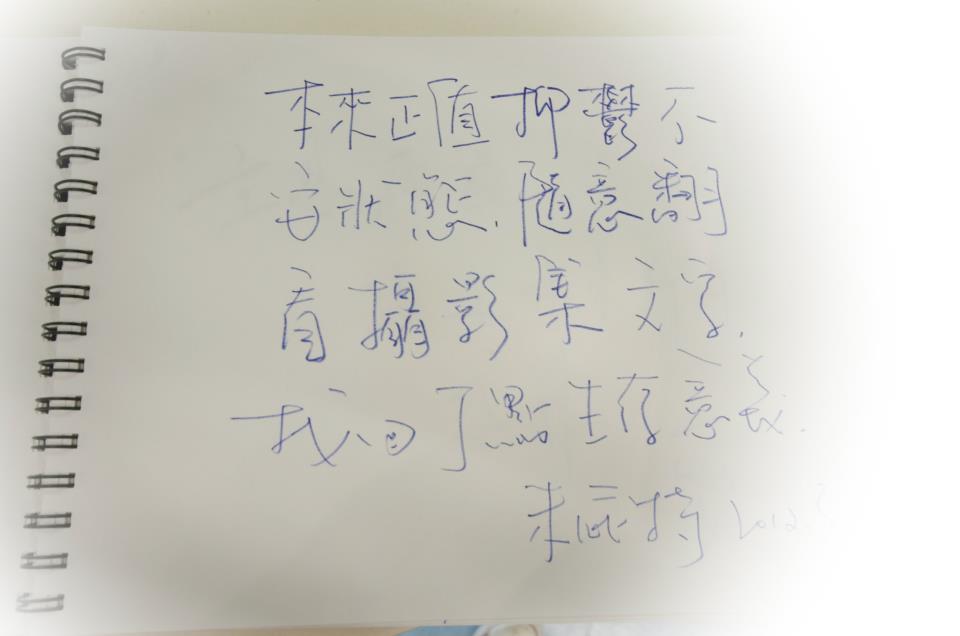 本來正值抑鬱不
安狀態.隨意翻
看攝影集文字.
找回了點生存意義.
朱庇特 2012.